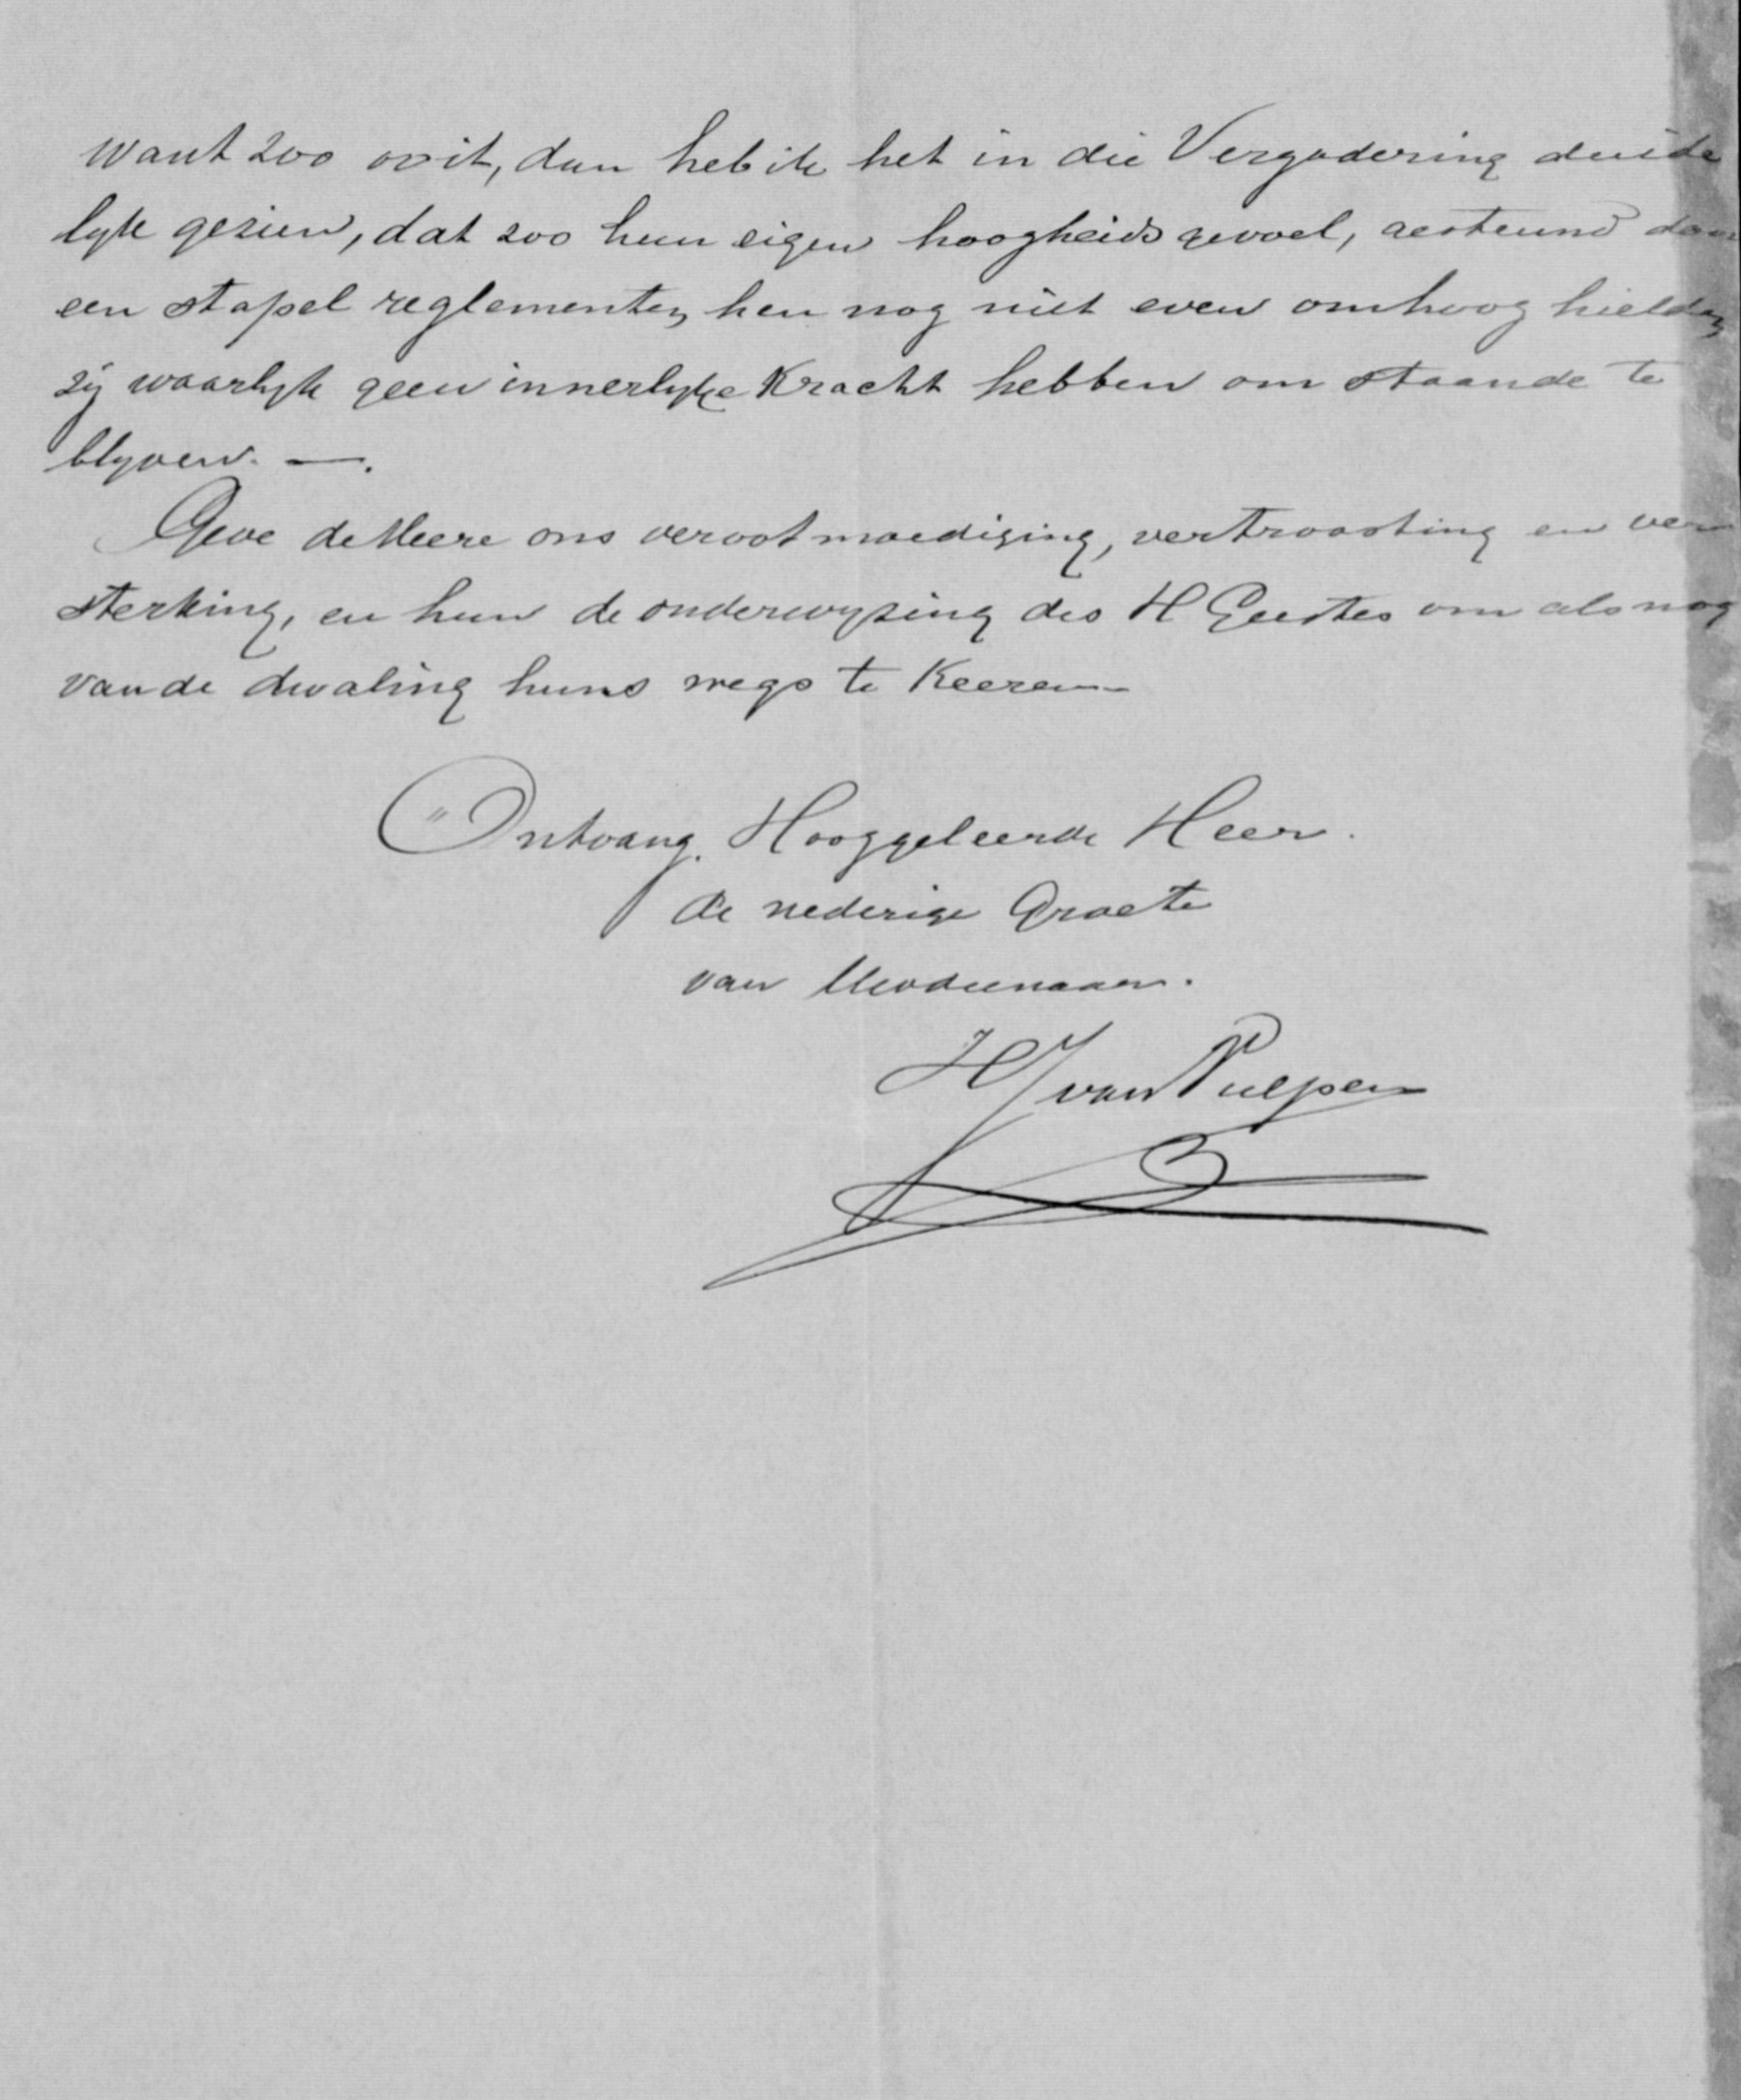 want zoo ooit, dan heb ik het in die Vergadering duide
lyk gezien, dat zoo hun eigen hoogheids gevoel, gesteund door
een stapel reglementen hen nog niet even omhoog hielden
zij waarlyk geen innerlyke Kracht hebben om staande te
blyven. —.
Geve de Heere ons verootmoediging, vertroosting en ver
sterking, en hun de onderwyzing des H Geestes om als nog
van de dwaling huns wegs te Keeren
Ontvang. Hooggeleerde Heer.
de nederige Groete
van Uwdienaar.
HJ van Pulpen